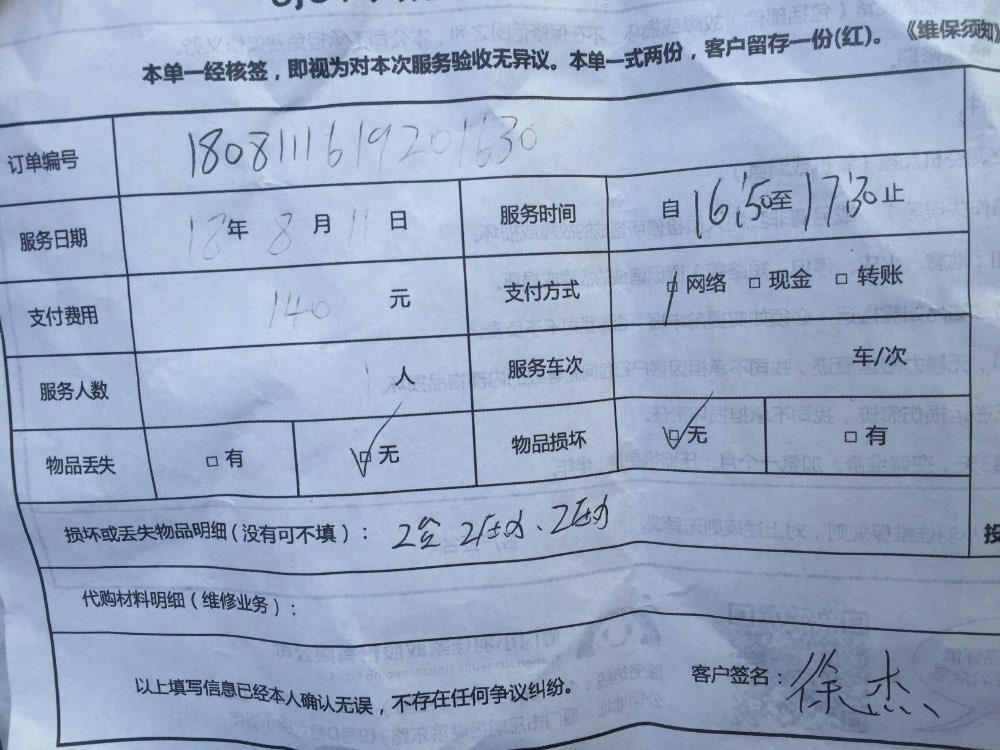 本单一经核签，即视为对本次服务验收无异议。本单一式两份，客户留存一份(红)。《维保须知》
订单编号 1808111619201630
服务日期 18年 8月 11日 服务时间 自16:50至17:30止
支付费用 140 元 支付方式 □网络 □现金 □转账
服务人数 1人 服务车次 车/次
物品丢失 □有 □无 物品损坏 □无 □有
损坏或丢失物品明细(没有可不填)：
代购材料明细(维修业务)：
以上填写信息已经本人确认无误，不存在任何争议纠纷。 客户签名：徐杰